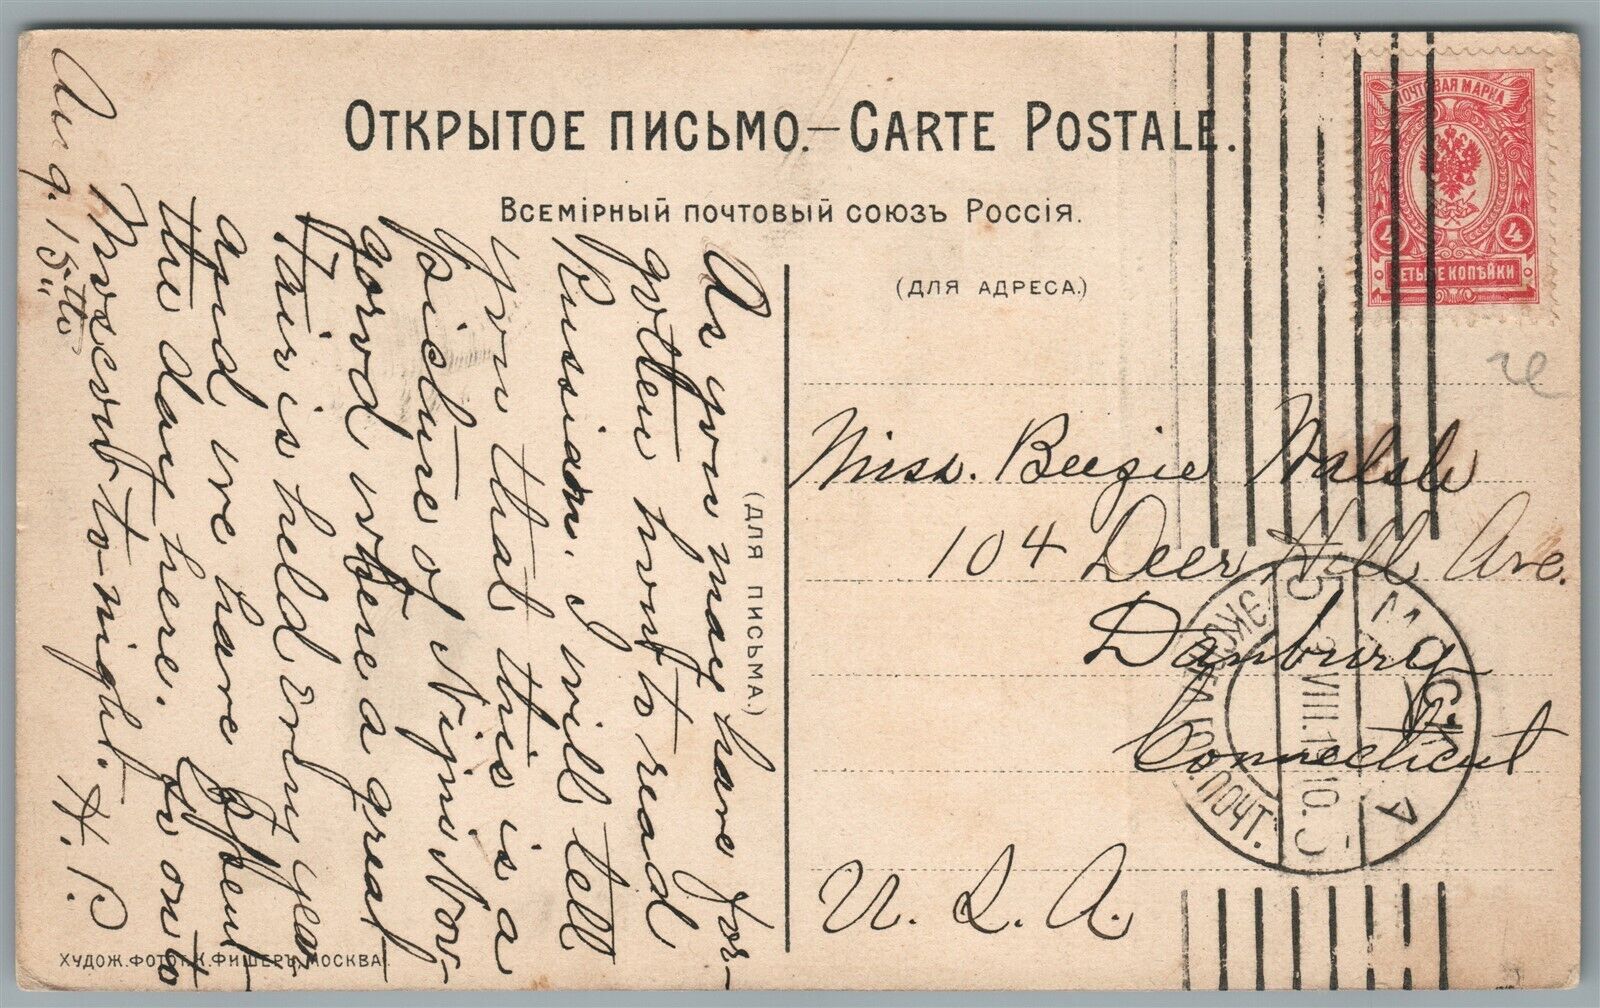 ОТКРЫТОЕ ПИСЬМО.–CARTE POSTALE.
ВСЕМІРНЫЙ ПОЧТОВЫЙ СОЮЗЪ РОССІЯ.
(ДЛЯ АДРЕСА.)
(ДЛЯ ПИСЬМА.)
ПОЧТОВАЯ МАРКА
4 4
ЧЕТЫРЕ КОПѢЙКИ
Aug. 15th
As you may have for-
gotten how to read
Russian. I will tell
you that this is a
picture of Nijni Nov-
gorod where a great
Fair is held every year
and we have spent
the day here. Go on to
Moscow to-night. H. P.
Miss. Beezie Walsh
104 Deer Hill Ave.
Danbury
Connecticut
U. S. A.
МОСКВА
VIII.10.
ПОЧТ.
ХУДОЖ. ФОТОТ. К. ФИШЕРЪ, МОСКВА.